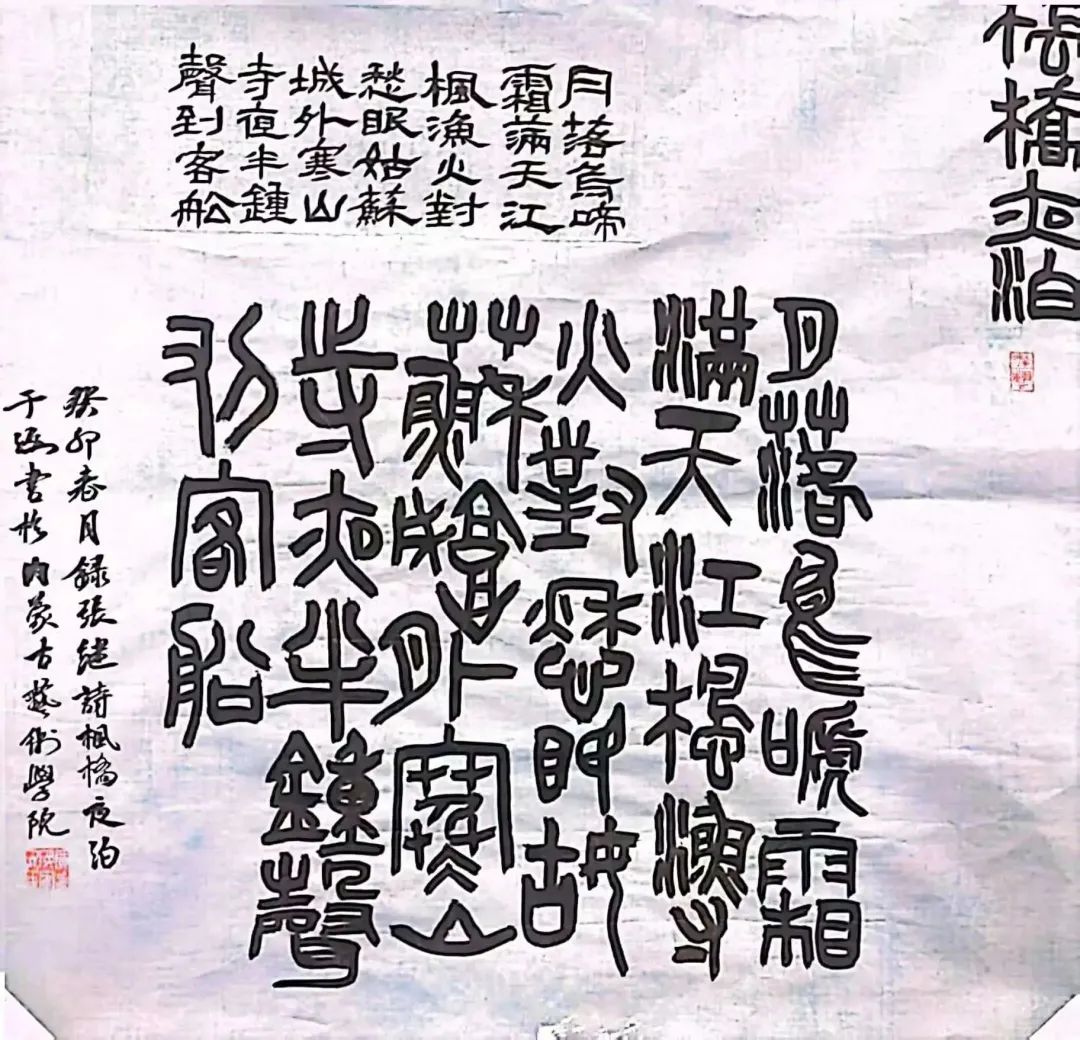 楓橋夜泊
月落烏啼
霜滿天江
楓漁火對
愁眠姑蘇
城外寒山
寺夜半鍾
聲到客舩
月落烏嗁霜
滿天江楓漁
火對愁眠姑
蘇城外寒山
寺夜半鍾聲
到客船
癸卯春月錄張継詩楓橋夜泊
于書於内蒙古藝術學院